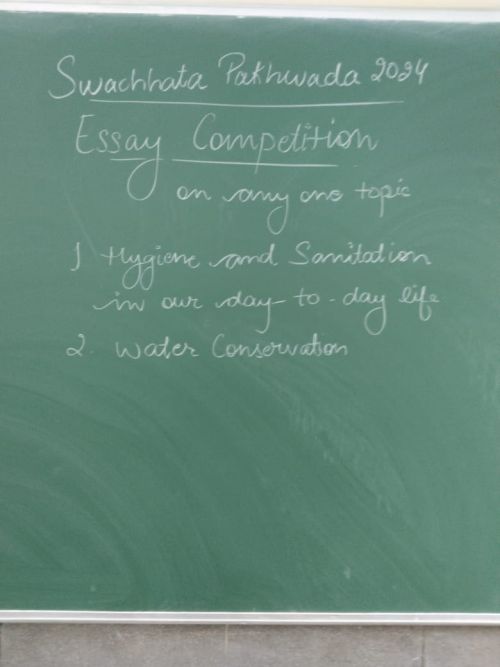 Swachhata Pakhwada 2024
Essay Competition
on any one topic
1 Hygiene and Sanitation
in our day-to-day life
2. Water Conservation